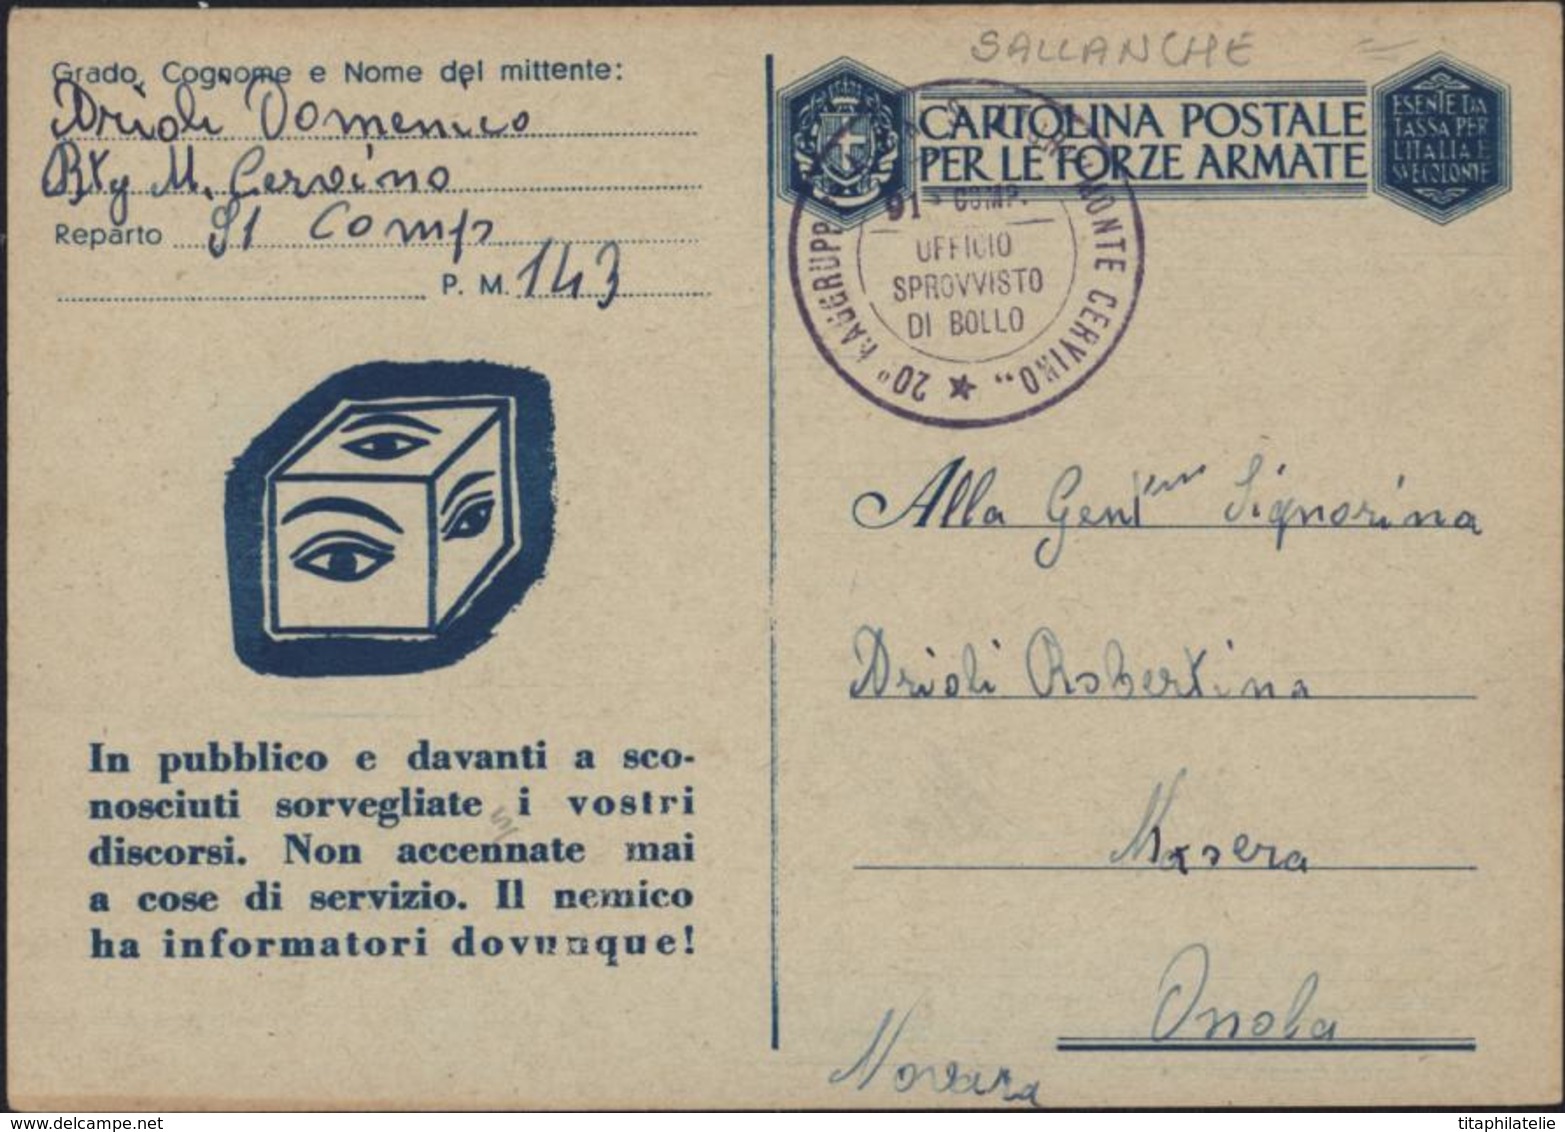 SALLANCHE
Grado, Cognome e Nome del mittente:
Drioli Domenico
Btg M. Cervino
Reparto 91 Comp
P. M. 143
CARTOLINA POSTALE
PER LE FORZE ARMATE
ESENTE DA
TASSA PER
L'ITALIA E
SVE COLONIE
20° RAGGRUPP MONTE CERVINO„
91ª COMP.
UFFICIO
SPROVVISTO
DI BOLLO
In pubblico e davanti a sco-
nosciuti sorvegliate i vostri
discorsi. Non accennate mai
a cose di servizio. Il nemico
ha informatori dovunque!
Alla Gent Signorina
Drioli Robertina
Masera
Ossola
Novara
titaphilatelie